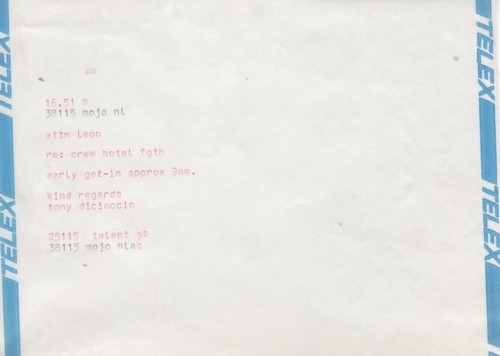 TELEX
TELEX
16.51 @
38115 mojo nl
attn leon
re: crew hotel fgth
early get-in approx 9am.
kind regards
tony dicioccio
25115 talent g@
38115 mojo nl
TELEX
TELEX
TELEX